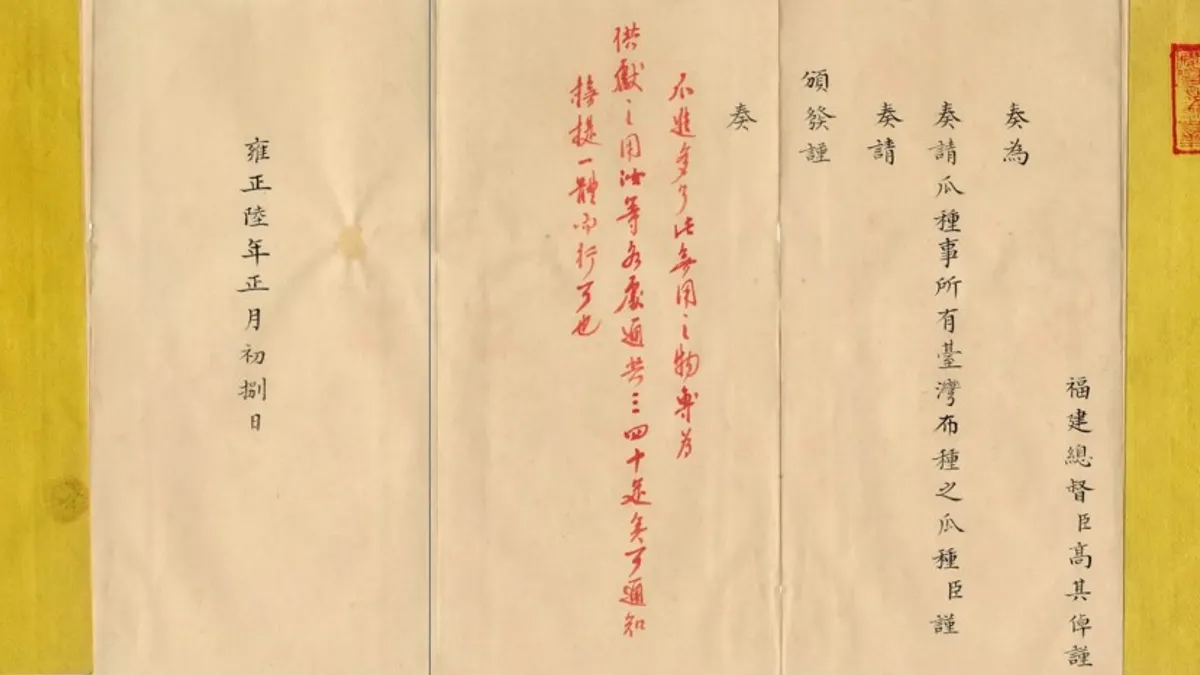 福建總督臣高其倬謹
奏為
奏請瓜種事所有臺灣布種之瓜種臣謹
奏請
頒發謹
奏
不進多了此無用之物專為
供獻之用汝等各處通共三四十足矣可通知
督提一體而行可也
雍正陸年正月初捌日